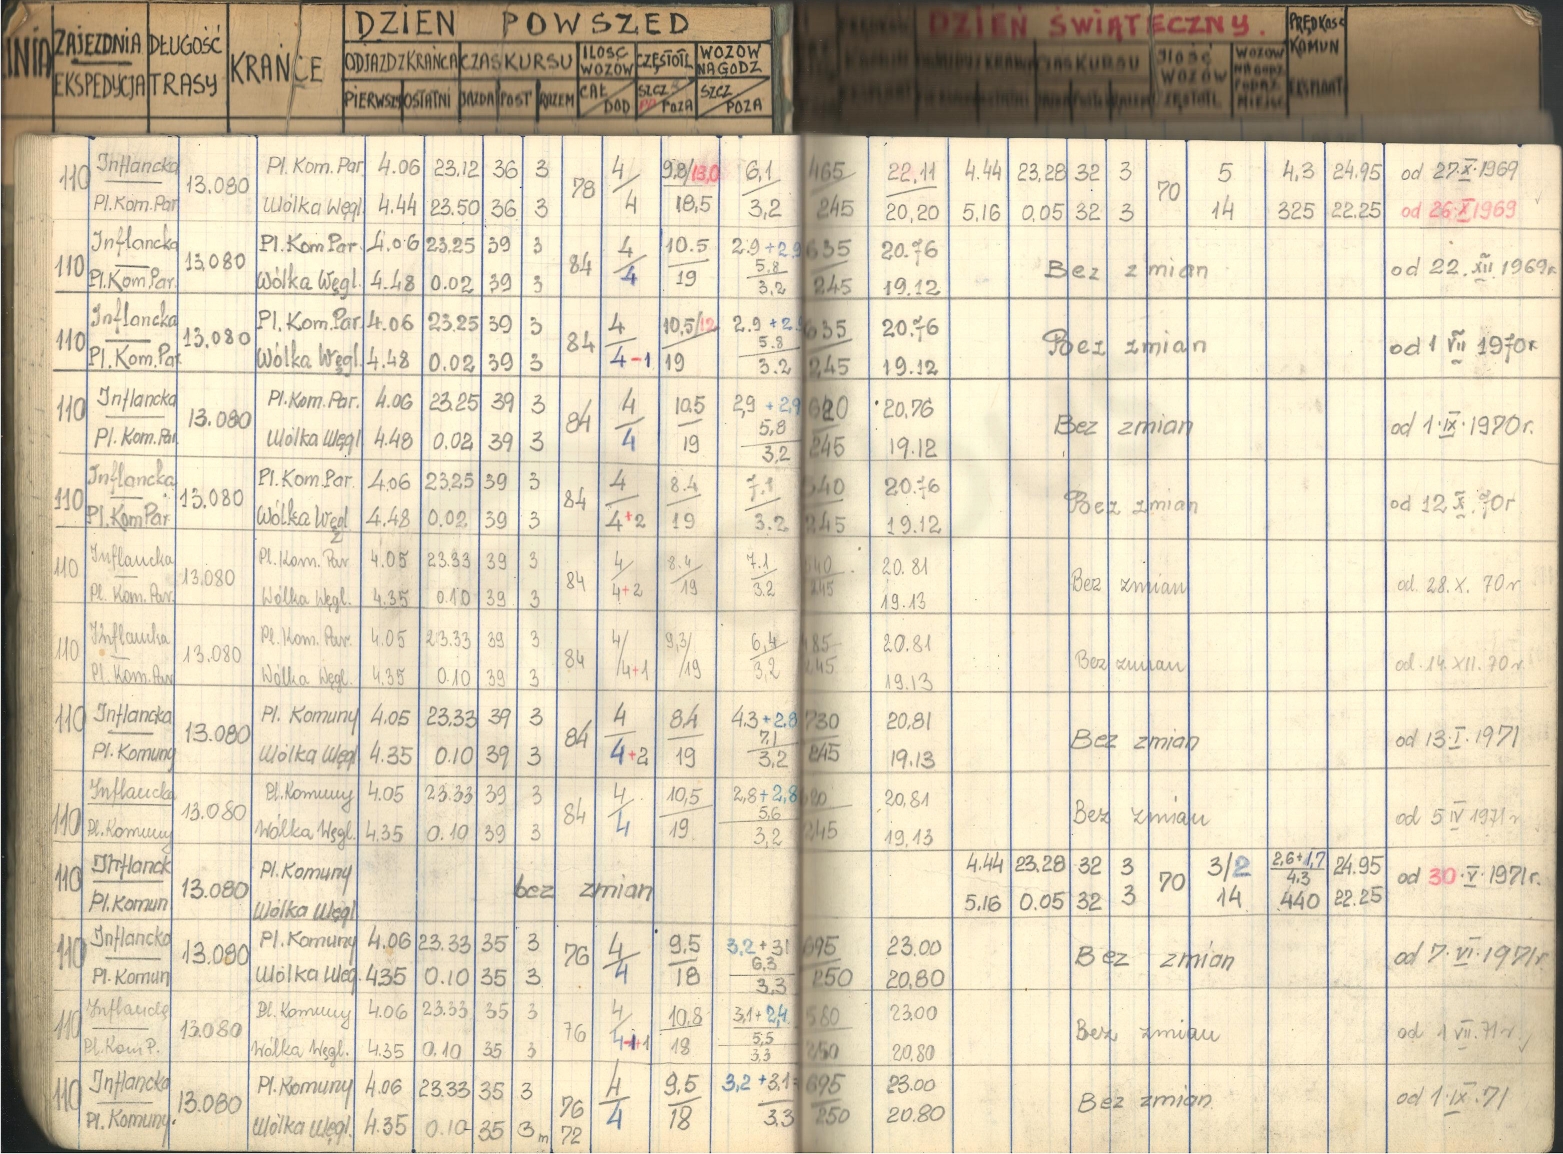 DZIEŃ POWSZED DZIEŃ ŚWIĄTECZNY.
ZAJEZDNIA DŁUGOŚĆ KRAŃCE ODJAZD Z KRAŃCA CZAS KURSU ILOŚĆ WOZÓW CZĘSTOTL WOZÓW NA GODZ PRĘDKOŚĆ KOMUN
EKSPEDYCJA TRASY PIERWSZY OSTATNI JAZDA POST RAZEM CAŁ DOD SZCZ POZA SZCZ POZA EKSPLOAT
110 Inflancka 13.080 Pl. Kom. Par 4.06 23.12 36 3 78 4 9,8/13,0 6,1 465 22,11 4.44 23,28 32 3 70 5 4,3 24.95 od 27.X.1969
Pl. Kom. Par Wólka Węgl 4.44 23.50 36 3 4 18,5 3,2 245 20,20 5,16 0.05 32 3 14 325 22.25 od 26.X.1969
110 Inflancka 13,080 Pl. Kom Par. 4.06 23.25 39 3 84 4 10.5 2.9+2.9 635 20.76 Bez zmian od 22.XII.1969r.
5.8
Pl. Kom Par. Wólka Węgl. 4.48 0.02 39 3 4 19 3,2 245 19.12
110 Inflancka 13.080 Pl. Kom. Par 4.06 23.25 39 3 84 4 10,5/12 2.9+2.9 635 20.76 Bez zmian od 1 VII 1970r
5.8
Pl. Kom. Par Wólka Węgl. 4.48 0.02 39 3 4-1 19 3.2 245 19.12
110 Inflancka 13.080 Pl. Kom. Par. 4.06 23.25 39 3 84 4 10.5 2,9+2,9 620 20,76 Bez zmian od 1.IX.1970r.
5,8
Pl. Kom. Par Wólka Węgl 4.48 0.02 39 3 4 19 3,2 245 19.12
110 Inflancka 13.080 Pl. Kom. Par. 4.06 23.25 39 3 84 4 8.4 7.1 540 20.76 Bez zmian od 12 X.70r
Pl. Kom Par Wólka Węgl 4.48 0.02 39 3 4+2 19 3.2 245 19.12
110 Inflancka 13.080 Pl. Kom. Par 4.05 23.33 39 3 84 4 8.4 7.1 540 20.81 Bez zmian od. 28.X.70r
Pl. Kom. Par. Wólka Węgl. 4.35 0.10 39 3 4+2 19 3.2 245 19.13
110 Inflancka 13.080 Pl. Kom. Par. 4.05 23.33 39 3 84 4 9,3 6,4 485 20.81 Bez zmian od. 14.XII.70r
Pl. Kom. Par Wólka Węgl. 4.35 0.10 39 3 4+1 19 3,2 245 19.13
110 Inflancka 13.080 Pl. Komuny 4.05 23.33 39 3 84 4 8.4 4.3+2.8 730 20,81 Bez zmian od 13.I.1971
7,1
Pl. Komuny Wólka Węgl 4.35 0.10 39 3 4+2 19 3,2 245 19.13
110 Inflancka 13.080 Pl. Komuny 4.05 23.33 39 3 84 4 10,5 2,8+2,8 620 20,81 Bez zmian od 5 IV 1971r
5,6
Pl. Komuny Wólka Węgl. 4.35 0.10 39 3 4 19. 3,2 245 19.13
110 Inflanck 13.080 Pl. Komuny bez zmian 4.44 23,28 32 3 70 3/2 2,6+1,7 24.95 od 30.V.1971r.
4.3
Pl. Komun Wólka Węgl 5,16 0.05 32 3 14 440 22.25
110 Inflancka 13.080 Pl. Komuny 4.06 23.33 35 3 76 4 9,5 3,2+3,1 695 23.00 Bez zmian od 7.VI.1971r.
6,3
Pl. Komun Wólka Węg. 4.35 0.10 35 3 4 18 3,3 250 20,80
110 13.080 Pl. Komuny 4.06 23.33 35 3 76 4 10.8 3,1+2,4 580 23.00 Bez zmian od 1 VII.71r.
5,5
Pl. Kom P. Wólka Węgl. 4.35 0.10 35 3 18 3,3 250 20,80
110 Inflancka 13.080 Pl. Komuny 4.06 23.33 35 3 76 4 9,5 3,2+3,1 695 23.00 Bez zmian od 1.IX.71
Pl. Komuny. Wólka Węgl. 4.35 0.10 35 3m 72 4 18 3,3 250 20.80